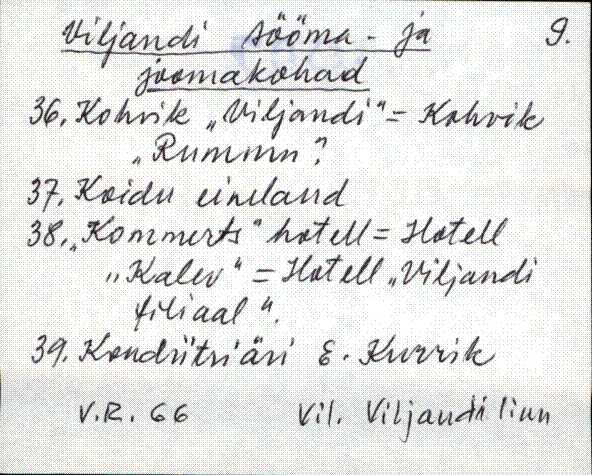 Viljandi sööma- ja 9.
joomakohad
36. Kohvik „Viljandi“ = Kohvik
„Rummu?
37. Koidu eineland
38. „Kommerts“ hotell = Hotell
„Kalev“ = Hotell „Viljandi
filiaal“.
39. Kondiitriäri E. Kurrik
V.R. 66 Vil. Viljandi linn